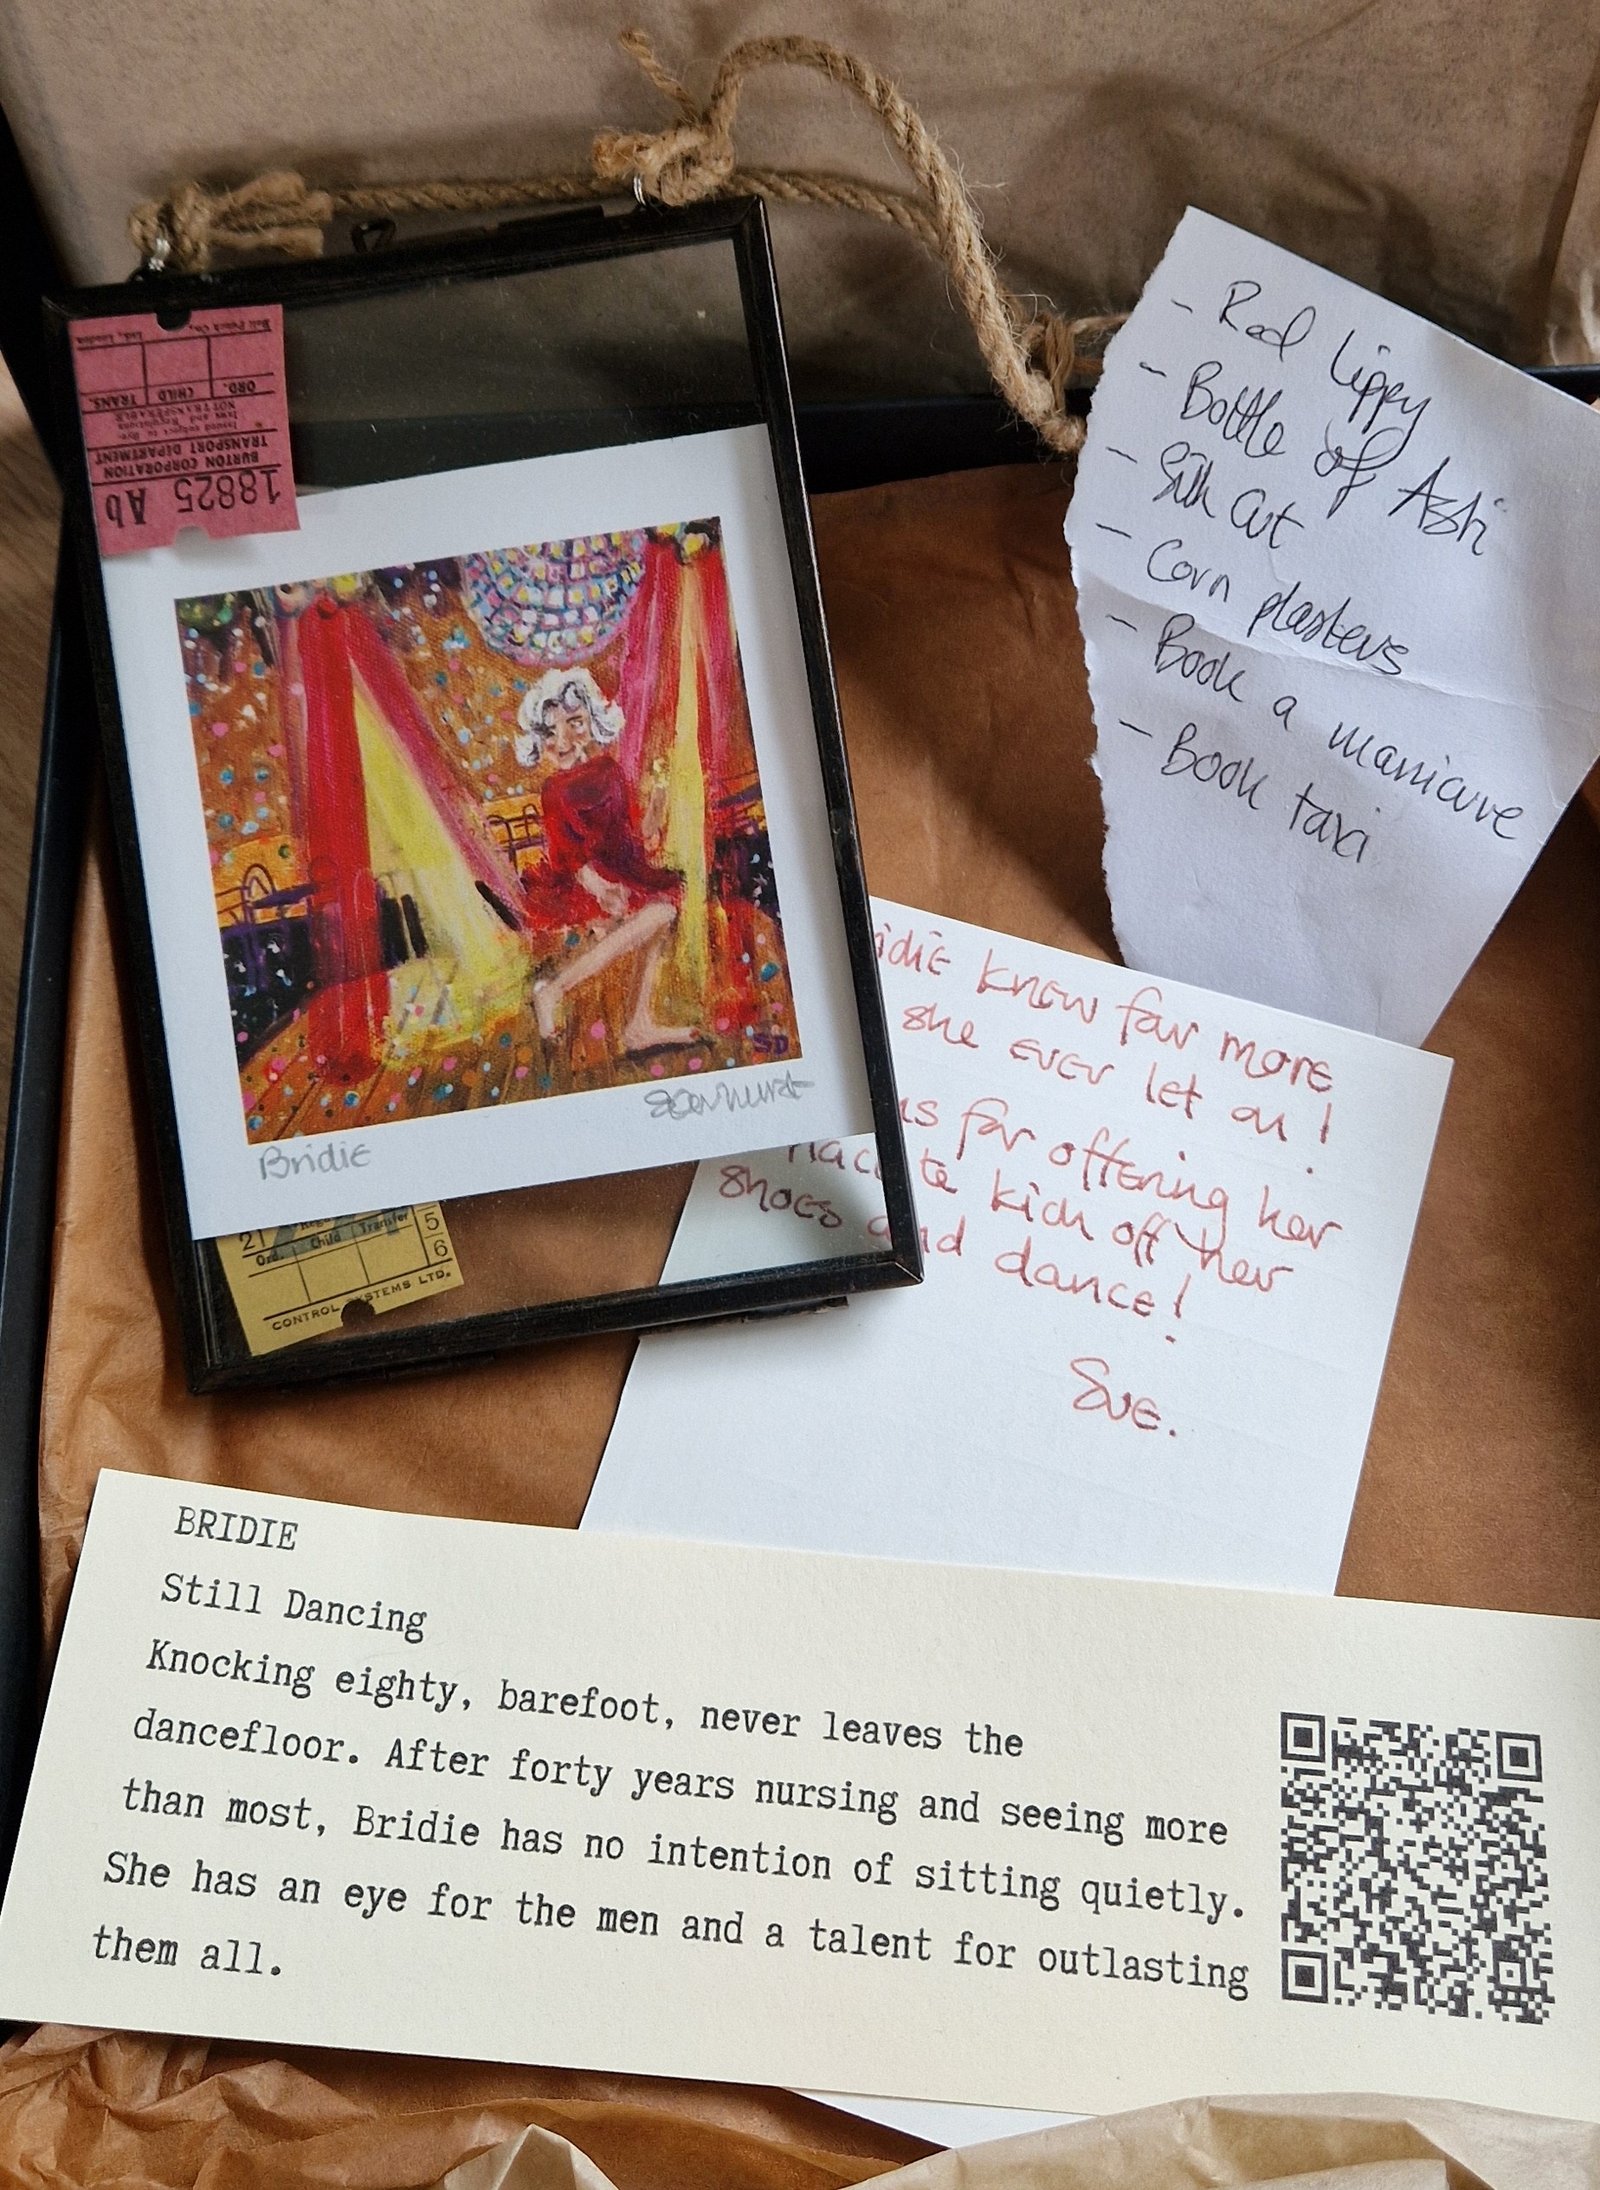 Bell Punch Co.,
ORD. CHILD TRANS.
Issued subject to Bye-
laws and Regulations
NOT TRANSFERABLE
BURTON CORPORATION
TRANSPORT DEPARTMENT
18825 Ab
SD
Bridie
21
Ord. Child Transfer
5
6
CONTROL SYSTEMS LTD.
- Red Lippy
- Bottle of Asti
- Silk Cut
- Corn plasters
- Book a manicure
- Book taxi
idie knew far more
she ever let on!
us for offering her
place to kick off her
shoes and dance!
Sue.
BRIDIE
Still Dancing
Knocking eighty, barefoot, never leaves the
dancefloor. After forty years nursing and seeing more
than most, Bridie has no intention of sitting quietly.
She has an eye for the men and a talent for outlasting
them all.